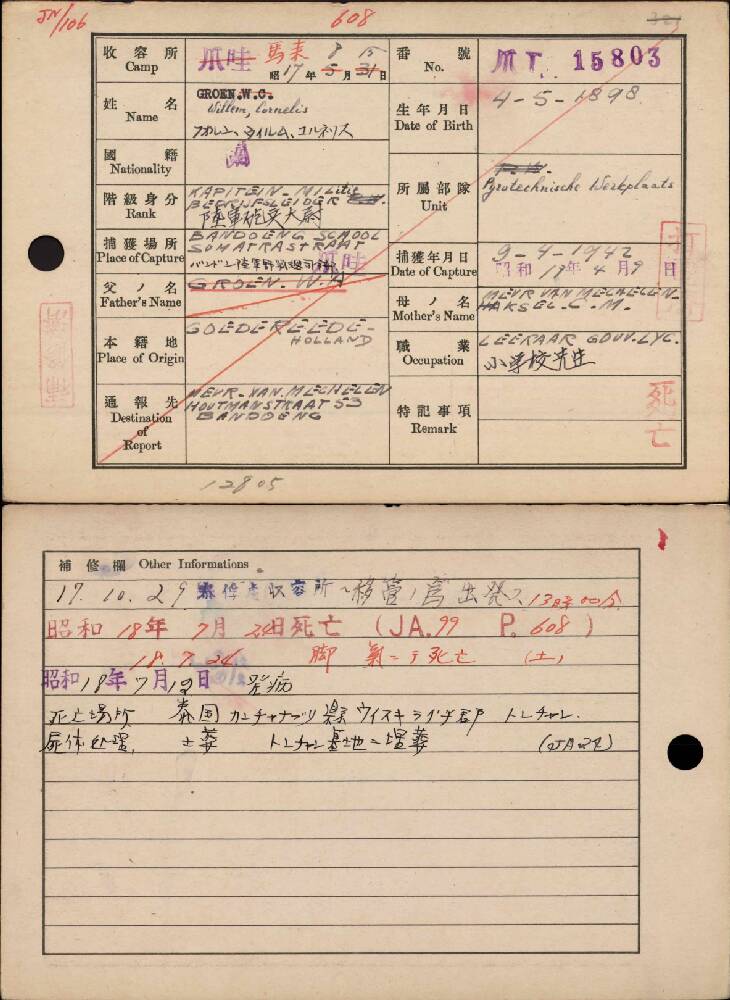 JN/106
608
收容所 Camp 爪哇 馬来 8 15
昭17年5月31日
番號 No. 爪T. 15803
姓名 Name GROEN.W.C.
Willem, Cornelis
生年月日 Date of Birth 4-5-1898.
國籍 Nationality 蘭
階級身分 Rank KAPITEIN-MILitie
BEDRIJFSLEIDER
陸軍砲兵大尉
所屬部隊 Unit
Pyrotechnische Werkplaats
捕獲場所 Place of Capture BANDOENG SCHOOL
SUMATRASTRAAT
爪哇
捕獲年月日 Date of Capture 9-4-1942
昭和17年4月9日
父ノ名 Father's Name GROEN. W.
母ノ名 Mother's Name MEVR VAN MECHELEN-
HAKSEL.C.M.
本籍地 Place of Origin GOEDEREEDE-
HOLLAND
職業 Occupation LEERAAR GOUV.LYC.
小学校先生
通報先 Destination of Report MEVR. VAN. MECHELEN
HOUTMANSTRAAT 53
BANDOENG
特記事項 Remark
死亡
12805
補修欄 Other Informations
17. 10. 29 収容所ヘ移管ノ為出発ス 13時00分
昭和18年7月24日死亡 (JA.99 P.608)
18.7.24 脚氣ニテ死亡 (土)
昭和18年7月19日 発病
死亡場所 泰国カンチャナブリ県 トンチャン.
屍体処理. 土葬 トンチャン墓地ニ埋葬